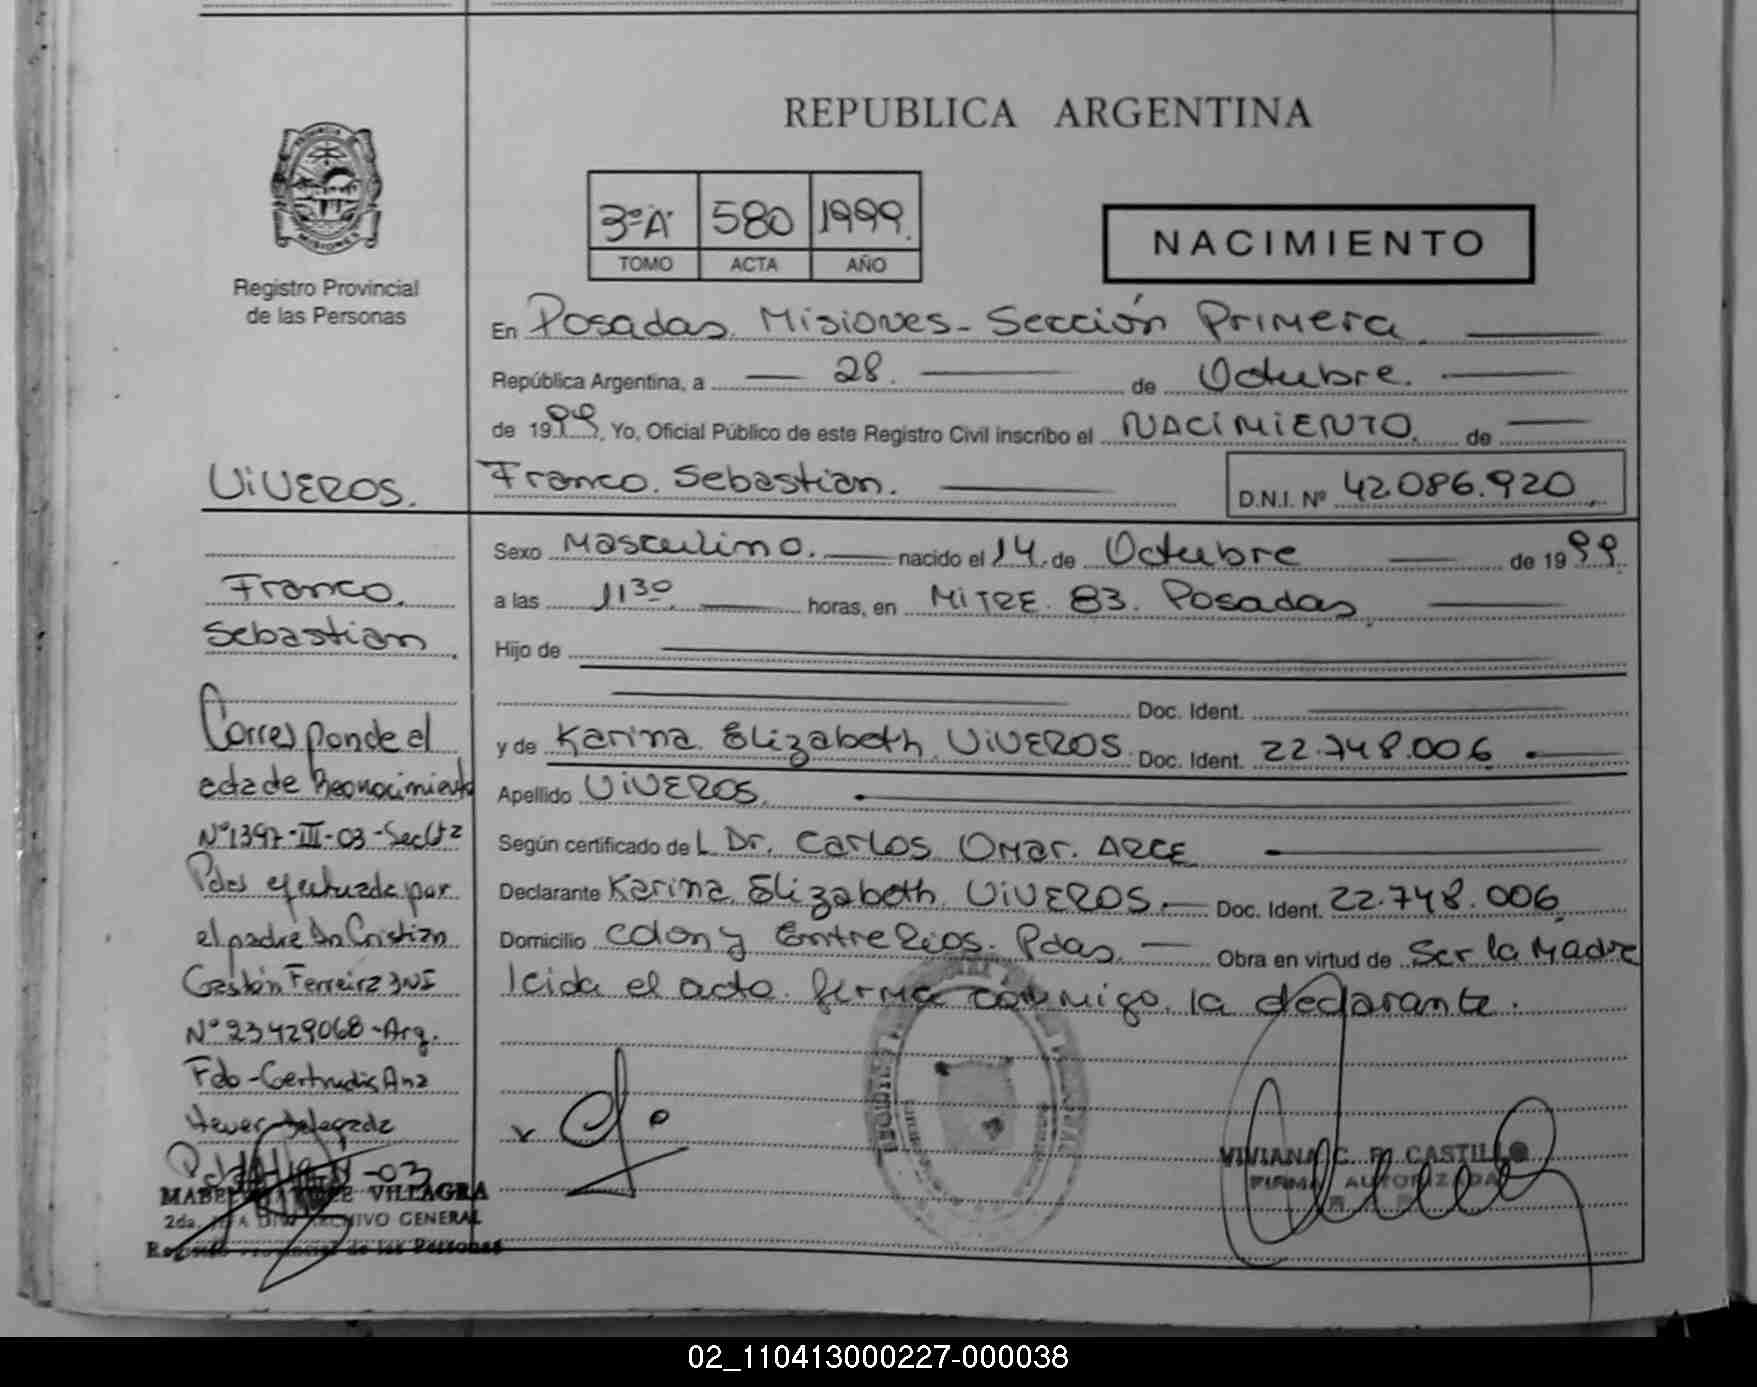 REPUBLICA ARGENTINA
PROVINCIA
MISIONES
Registro Provincial
de las Personas
3º A 580 1999.
TOMO ACTA AÑO
NACIMIENTO
En Posadas. Misiones - Sección Primera.
República Argentina, a 28. de Octubre.
de 1999, Yo, Oficial Público de este Registro Civil inscribo el NACIMIENTO. de
VIVEROS. Franco. Sebastian. D.N.I. Nº 42.086.920
Sexo Masculino. nacido el 14. de Octubre de 1999.
a las 11 30 horas, en MITRE. 83. Posadas.
Hijo de
Doc. Ident.
y de Karina. Elizabeth. VIVEROS. Doc. Ident. 22.748.006
Apellido VIVEROS.
Según certificado de L Dr. Carlos Omar. ARCE
Declarante Karina. Elizabeth. VIVEROS. Doc. Ident. 22.748.006
Domicilio Colon y Entre Rios. Pdas. Obra en virtud de Ser la Madre
leida el acto. firma conmigo. la declarante.
VIVIANA C. R. CASTILLO
FIRMA AUTORIZADA
Franco.
Sebastian.
Corresponde el
acta de Reconocimiento
Nº 1397-III-03-Sec
Pdas efectuada por
el padre Dn Cristian
Gastón Ferreira DNI
Nº 23429068-Arg.
Fdo-Gertrudis Ana
Delegada
-03
VILLAGRA
2da. ARCHIVO GENERAL
Registro Provincial de las Personas
02_110413000227-000038